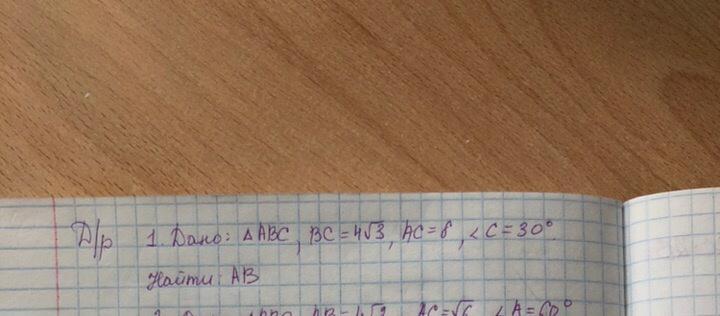 Д/р 1. Дано: △ABC, BC=4√3, AC=8, ∠C=30°.
Найти: AB
AC=√6, ∠A=60°